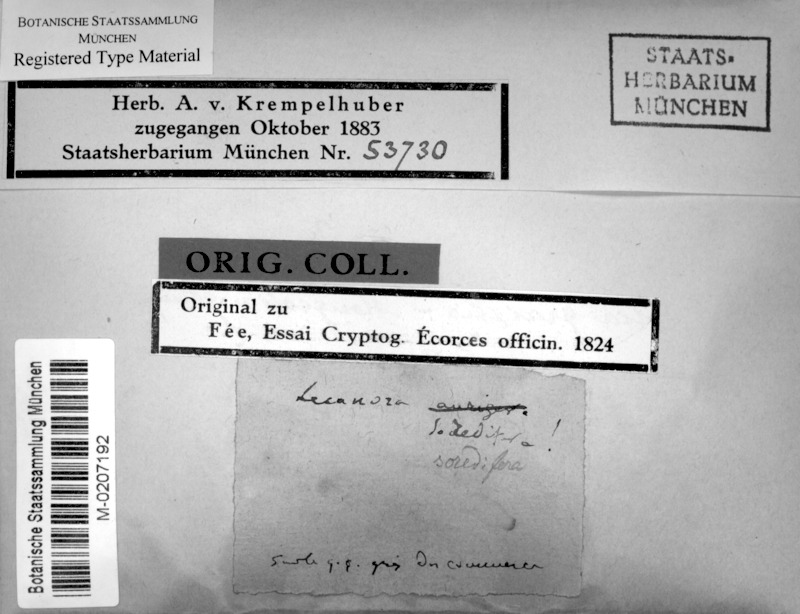 BOTANISCHE STAATSSAMMLUNG
MÜNCHEN
Registered Type Material
STAATS-
HERBARIUM
MÜNCHEN
Herb. A. v. Krempelhuber
zugegangen Oktober 1883
Staatsherbarium München Nr. 53730
ORIG. COLL.
Original zu
Fée, Essai Cryptog. Écorces officin. 1824
Botanische Staatssammlung München
M-0207192
Lecanora
!
soredifera
gris du commerce